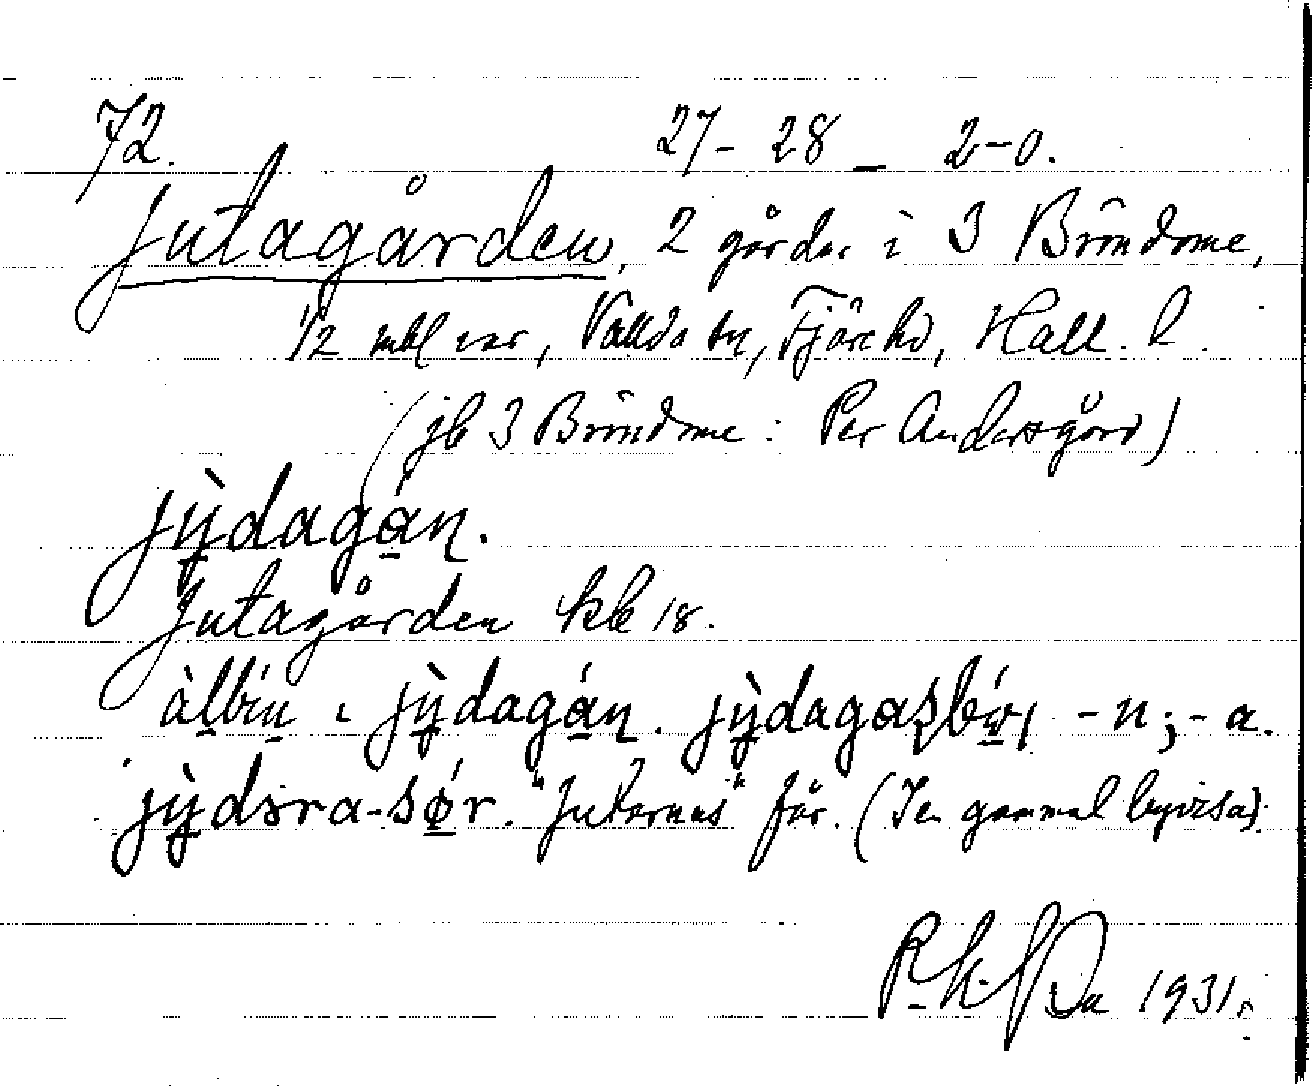 72. 27- 28 - 2-0.
Jutagården, 2 gårdar i 3 Bröndome,
1/2 mtl var, Vallda sn, Fjäre hd, Hall. l.
(jb 3 Bröndome: Per Andersgård)
jỳdagán.
Jutagården kb 18.
àlbin i jỳdagán. jỳdagasbór, -n; -a.
jỳdsra-sǿr. "Jutarnas" för. (I en gammal byvisa).
1931.